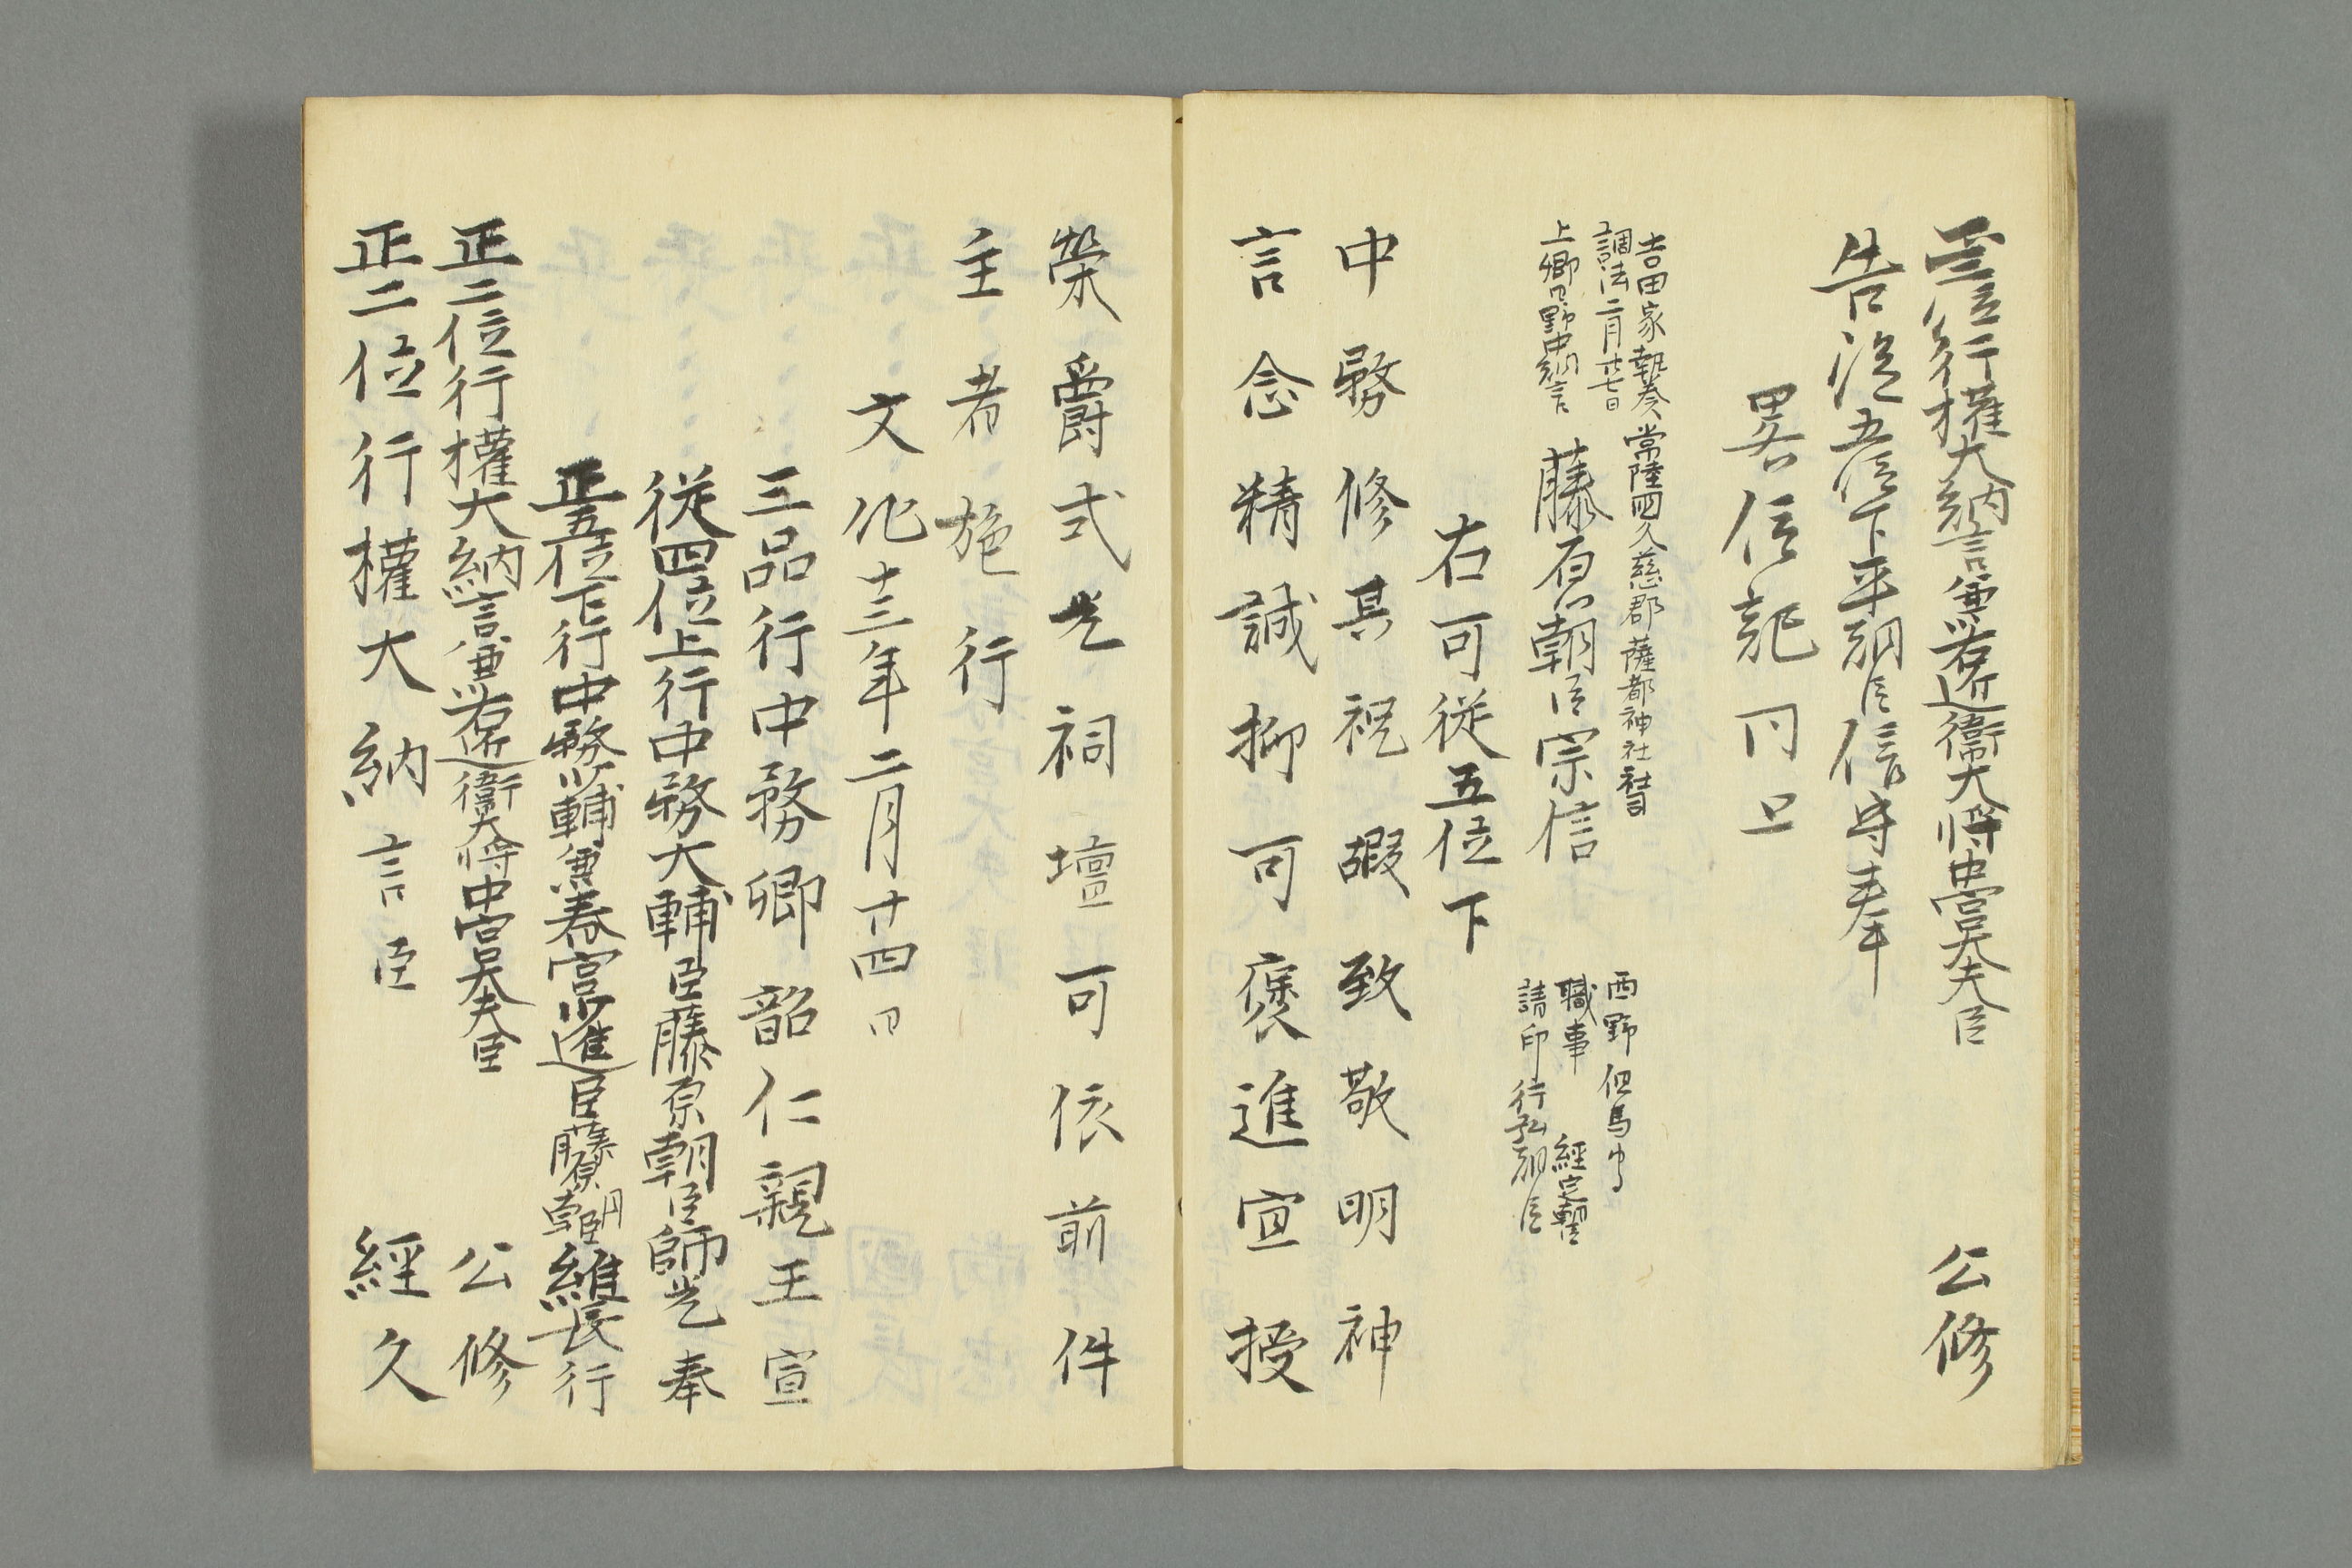 正二位行權大納言兼右近衛大將中宮大夫臣 公修
告從五位下平朝臣信守奉
畧
吉田家執奏 常陸國久慈郡薩都神社社司 西野但馬
調法二月廿七日 職事 經
上卿日野中納言 藤原朝臣宗信 請印行弘朝臣
右可從五位下
中務修其祝嘏致敬明神
言念精誠抑可褒進宜授
榮爵式光祠壇可依前件
主者施行
文化十三年二月廿四日
三品行中務卿韶仁親王宣
從四位上行中務大輔臣藤原朝臣師光奉
正五位下行中務少輔兼春宮少進臣藤原朝臣維長行
正二位行權大納言兼右近衛大將中宮大夫臣 公修
正二位行權大納言臣 經久